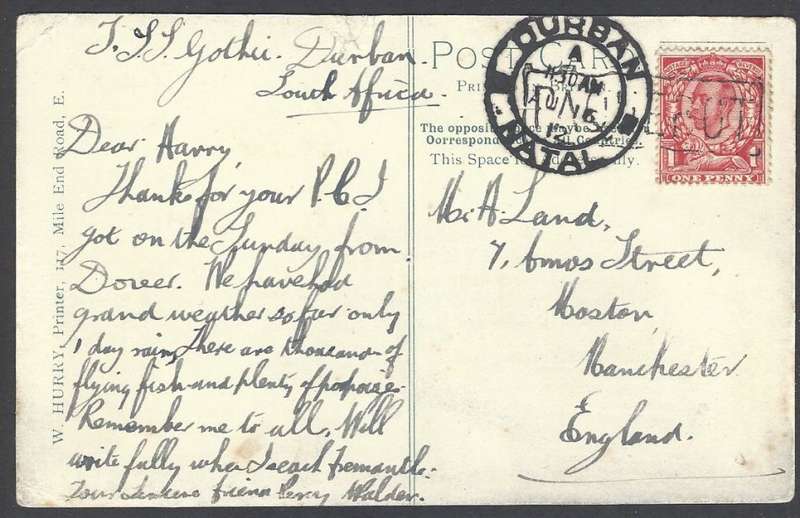 T.S.S. Gothic. Durban.
South Africa.
Dear Harry,
Thanks for your P.C. I
got on the Sunday from
Dover. We have had
grand weather so far only
1 day rain, There are thousands of
flying fish and plenty of porpoises.
Remember me to all. Will
write fully when I reach Fremantle.
Your Sincere friend Percy Walder.
W. HURRY, Printer, 117, Mile End Road, E.
POST CARD
The opposite
This Space
DURBAN
A
11.30 AM
AU 16
12
NATAL
ONE PENNY
Mr. A. Land,
7, Amos Street,
Moston,
Manchester
England.